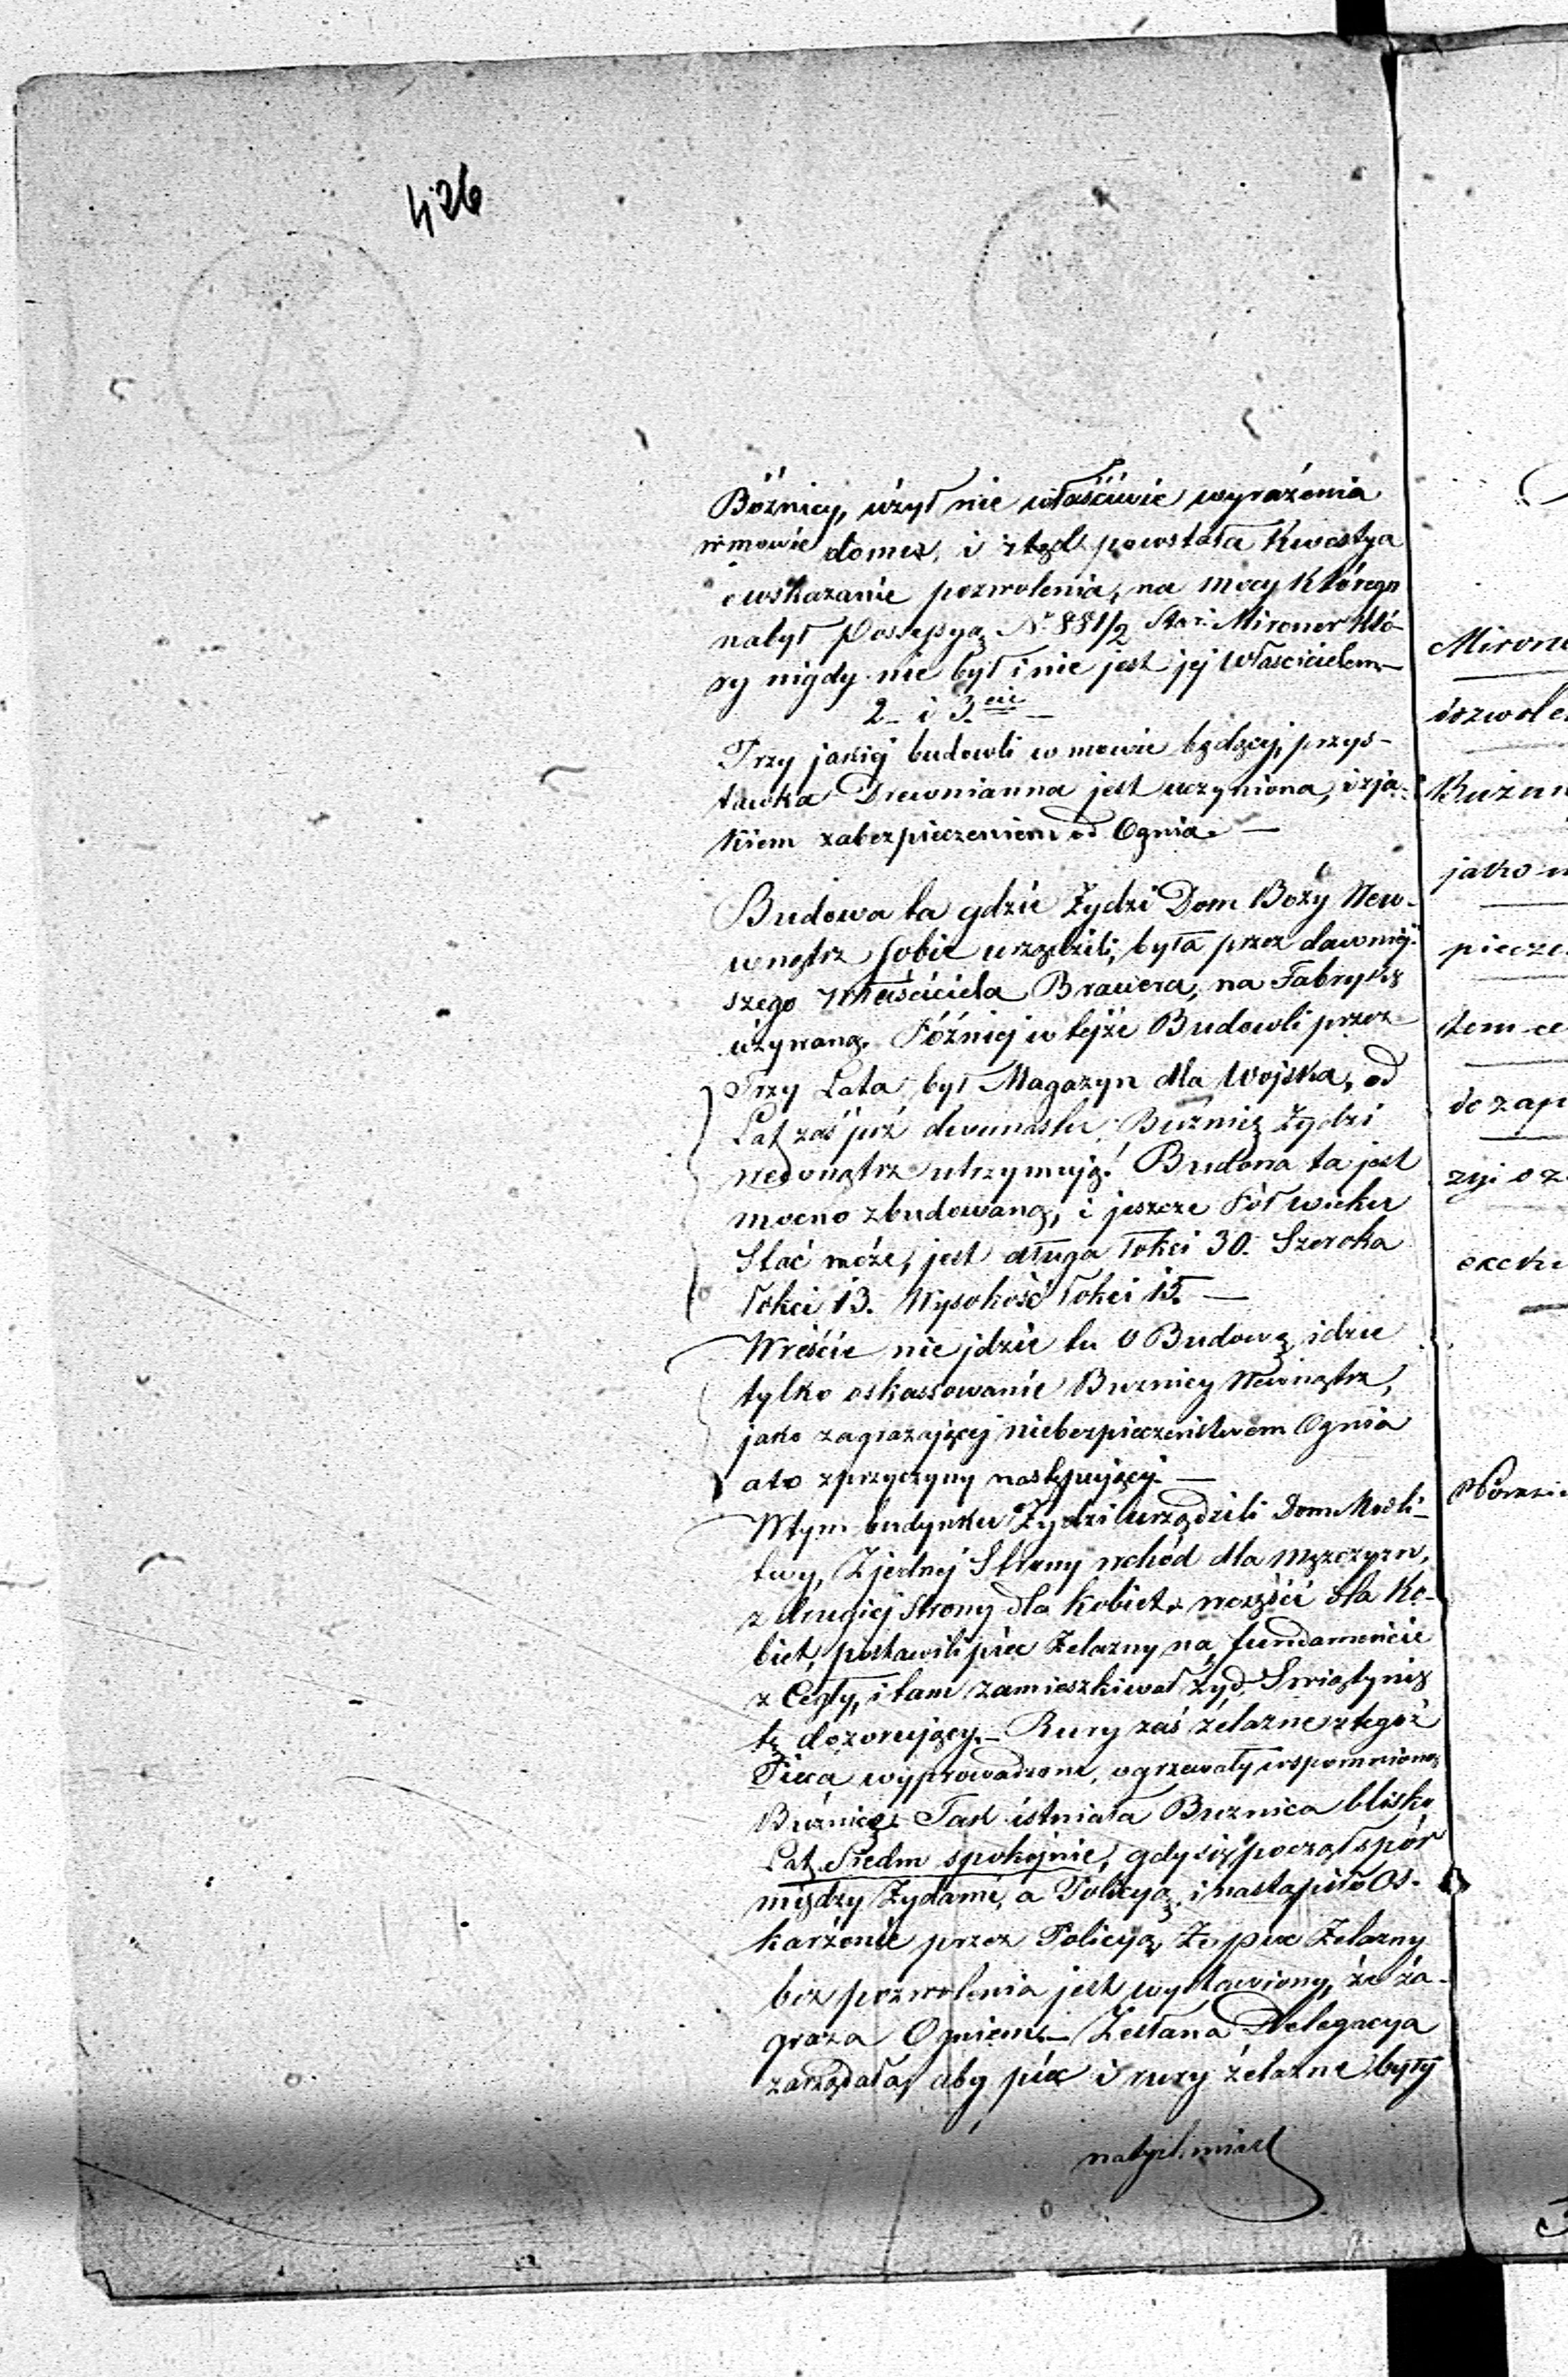 426
Bóżnicy, użył nie właściwie wyrażenia
w mowie domu, i ztąd powstała Kwestya
o wskazanie pozwolenia, na mocy którego
nabył Possessyą Nr 881/2 Star: Mironer Któ-
ry nigdy nie był i nie jest jej Właścicielem—
2– i 3.cie —
Przy jakiej budowli w mowie będącej, przys-
tawka Drewnianna jest uczyniona, i z ja-
kiem zabezpieczeniem od Ognia. —
Budowa ta gdzie Żydzi Dom Boży Wew-
wnątrz sobie urządzili, była przez dawniej-
szego Właściciela Brauera, na Fabrykę
używaną. Później w tejże Budowli przez
Trzy Lata był Magazyn dla Wojska, od
Lat zaś już dwunastu Buźnię Żydzi
wewnątrz utrzymują. Budowa ta jest
mocno zbudowaną, i jeszcze Pół wieku
Stać może, jest długa łokci 30. Szeroka
łokci 13. Wysokość łokci 15. —
Wreście nie jdzie tu o Budowę idzie
tylko oskassowanie Buznicy Wewnątrz,
jako zagrażającej niebezpieczeństwem Ognia
a to z przyczyny następującej. —
W tym budynku Żydzi urządzili Dom Modli-
twy, Z jednej Strony wchód dla męzczyzn,
z drugiej Strony dla kobiet, w części dla Ko-
biet, postawili piec Żelazny na fundamencie
z Cegły, i tam zamieszkiwał żyd Swiątynię
tę dozorujący. — Rury zaś żelazne z tegoż
Pieca wyprowadzone, ogrzewały wspomnioną
Buźnicę. Tak istniała Buznica blisko
Lat Siedm spokojnie, gdy się począł spór
między Żydami, a Policyą, i nastąpiło Os-
karżenie przez Policyą, Że piec Żelazny
bez pozwolenia jest wystawiony, że za-
graża Ogniem. — Zesłana Delegacya
zarządała, aby piec i rury żelazne były
natychmiast